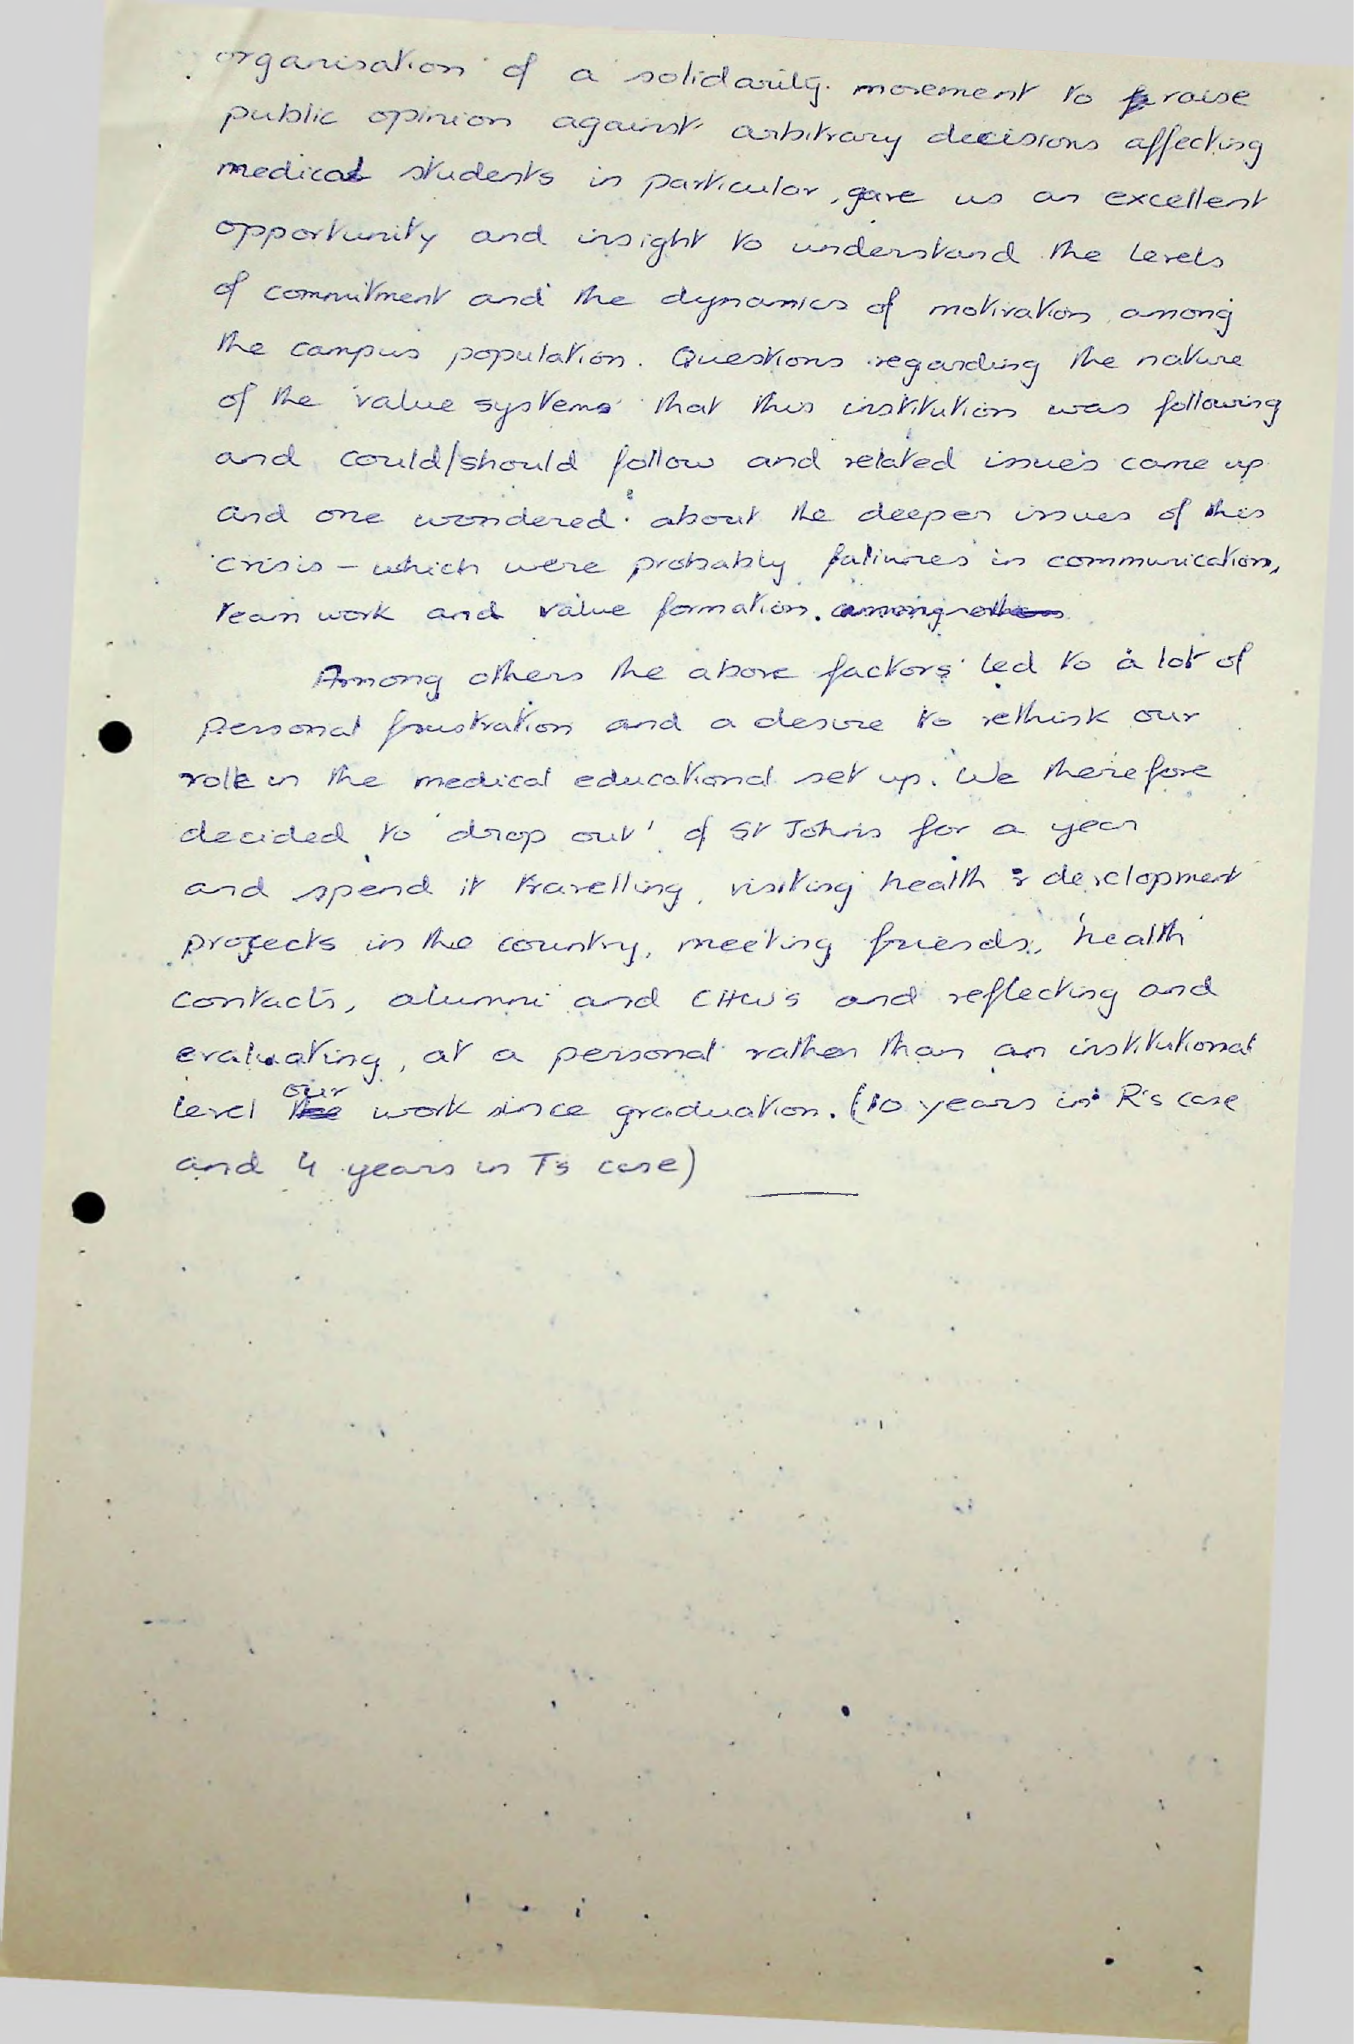 organisation of a solidarity movement to raise
public opinion against arbitrary decisions affecting
medical students in particular, gave us an excellent
opportunity and insight to understand the levels
of commitment and the dynamics of motivation among
the campus population. Questions regarding the nature
of the value systems that this institution was following
and could/should follow and related issues came up
and one wondered about the deeper issues of this
crisis – which were probably faliures in communication,
team work and value formation. among others
Among others the above factors led to a lot of
personal frustration and a desire to rethink our
role in the medical educational set up. We therefore
decided to 'drop out' of St Johns for a year
and spend it travelling, visiting health & development
projects in the country, meeting friends, health
contacts, alumni and CHWs and reflecting and
evaluating, at a personal rather than an institutional
level the our work since graduation. (10 years in R's case
and 4 years in T's case)